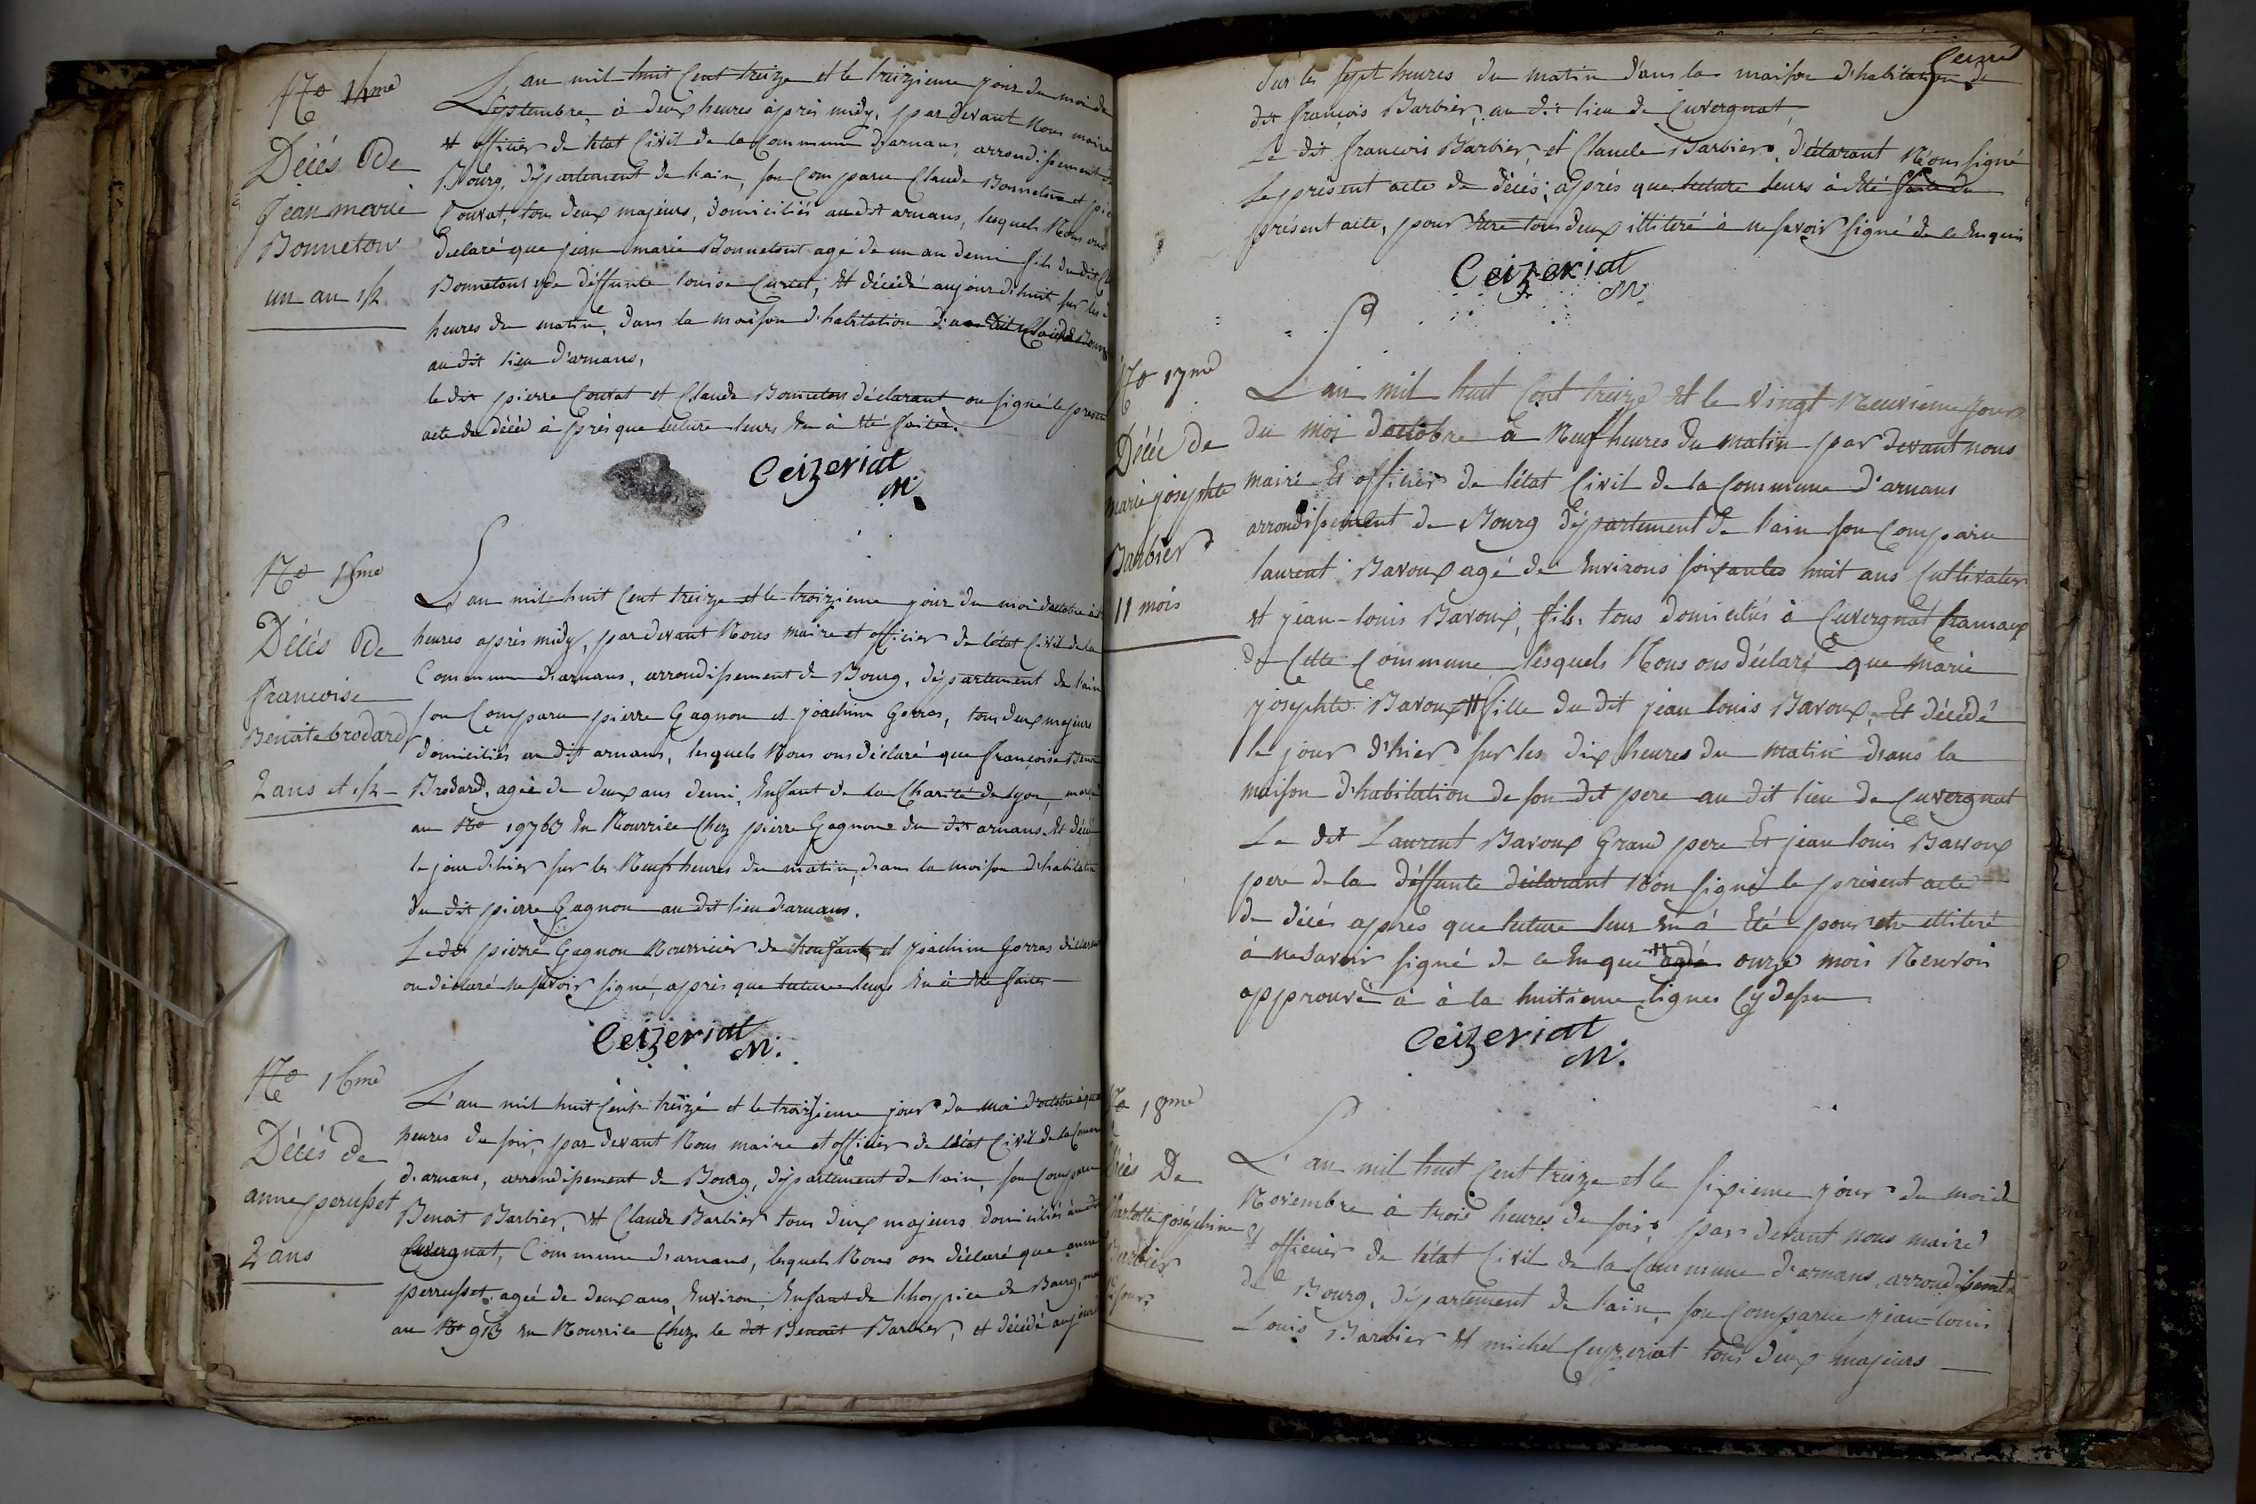 No 14me
Décés De
Jean marie
Bonneton
un an 1/2
L'an mil huit Cent treize et le treizieme jour du moi de
Septembre, à deux heures àprés midy, par devant Nous maire
et officier de l'état Civil de la Commune d'arnans, arrondissement de
Bourg, département de l'ain, son Comparu Claude Bonneton et pie
Convat, tous deux majeurs, domiciliés audit arnans, lesquels Nous ons
Declaré que jean marie Bonnetont agé de un an demi fils du dit Cl
Bonnetont et de déffunte louise Curtet, Et décédé aujourd'huit sur les
heures du matin, dans la maison d'habitation d'un dit Claude Bonn
au dit lieu d'arnans,
le dit pierre Convat et Claude Bonneton déclarant on signé le present
acte de décéd à près que lecture leurs En à Eté faites.
Ceizeriat
M.
No 15me
Décés De
francoise
Benoite brodard
2 ans et 1/2
L'an mil huit Cent treize et le troizieme jour du moi d'octobre à
heures aprés midy, par devant Nous maire et officier de l'état Civil de la
Commune d'arnans, arrondissement de Bourg, département de l'ain
son Comparu pierre Gagnon et joachim Gorras, tous deux majeurs
domiciliés au dit arnans, lesquels Nous ons déclaré que françoise Benoi
Brodard, agée de deux ans demi, Enfant de la Charité de lyon, mar
au No 19763 En Nourrice Chez pierre Gagnone du dit arnans Et décé
le jour d'hier sur les Neuf heures du matin, dans la maison d'habitation
du dit pierre Gagnon au dit lieu d'arnans.
Le dit pierre Gagnon Nourricier de l'Enfant et joachim Gorras déclarant
on déclaré ne savoir signé, aprés que lecture leurs En à Eté faites
Ceizeriat
M.
No 16me
Décés de
anne perusset
2 ans
L'an mil huit Cent treizé et le troizieme jour du moi d'octobre à quatre
heures du soir, par devant Nous maire et officier de l'état Civil de la Commu
d'arnans, arrondissement de Bourg, département de l'ain, son Comparu
Benoit Barbier, et Claude Barbier tous deux majeurs domiciliés à
Cuvergnat, Commune d'arnans, lesquels Nous on déclaré que anne
perrusset, agée de deux ans, Environ, Enfant de l'hospice de Bourg, mar
au No 913 En Nourrice Chez le dit Benoit Barbier, et décédé aujour
Ceizeriat
Sur les sept heures du matin dans la maison d'habitation de
dit françois Barbier, au dit lieu de Cuvergnat,
Le dit francois Barbier, et Claude Barbier, déclarant Non signé
le présent acte de décés, aprés que lecture leurs à Eté faite du
présent acte, pour Etre tous deux illiteré à ne savoir signé de ce Enquis
Ceizeriat
M.
No 17me
Décéé de
marie josephte
Barbier
11 mois
L'an mil huit Cent treize Et le Vingt Neuvieme jour
du moi doctobre à Neuf heures du matin par devant nous
maire Et officier de l'état Civil de la Commune d'arnans
arrondissement de Bourg département de l'ain son Comparu
laurent Bavoux agé de Environs soixantes huit ans Cultivater
et jéan-louis Bavoux, fils, tous domiciliés à Cuvergnat hamaux
de Cette Commune, lesquels Nous ons déclaré que marie
josephte Bavoux # fille du dit jean louis Bavoux, Et décédé
le jour d'hier sur les dix heures du matin dans la
maison d'habitation de son dit pere au dit lieu de Cuvergnat
Le dit Laurent Bavoux Grand pere Et jean louis Bavoux
pere de la déffunte déclarant Non signé le présent acte
de décés aprés que lecture leur En à Eté pour etre illiteré
à ne savoir signé de ce Enque # agé onze mois Renvoi
approuvé à à la huitieme lignes Cy dessu
Ceizeriat
M.
No 18me
Décés De
Charlotte joséphine
Barbier
jours
L'an mil huit Cent treize et le sixieme jour du moi de
Novembre à trois heures du soir, par devant nous maire
Et officier de l'état Civil de la Commune d'arnans, arrondissement
de Bourg, département de l'ain, son Comparu jean-louis
Louis Barbier Et michel Ceyzeriat tous deux majeurs